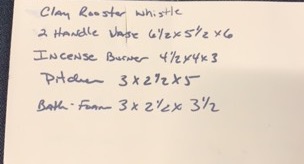 Clay Rooster Whistle
2 Handle Vase 6 1/2 x 5 1/2 x 6
Incense Burner 4 1/2 x 4 x 3
Pitcher 3 x 2 1/2 x 5
Bath - 3 x 2 1/2 x 3 1/2